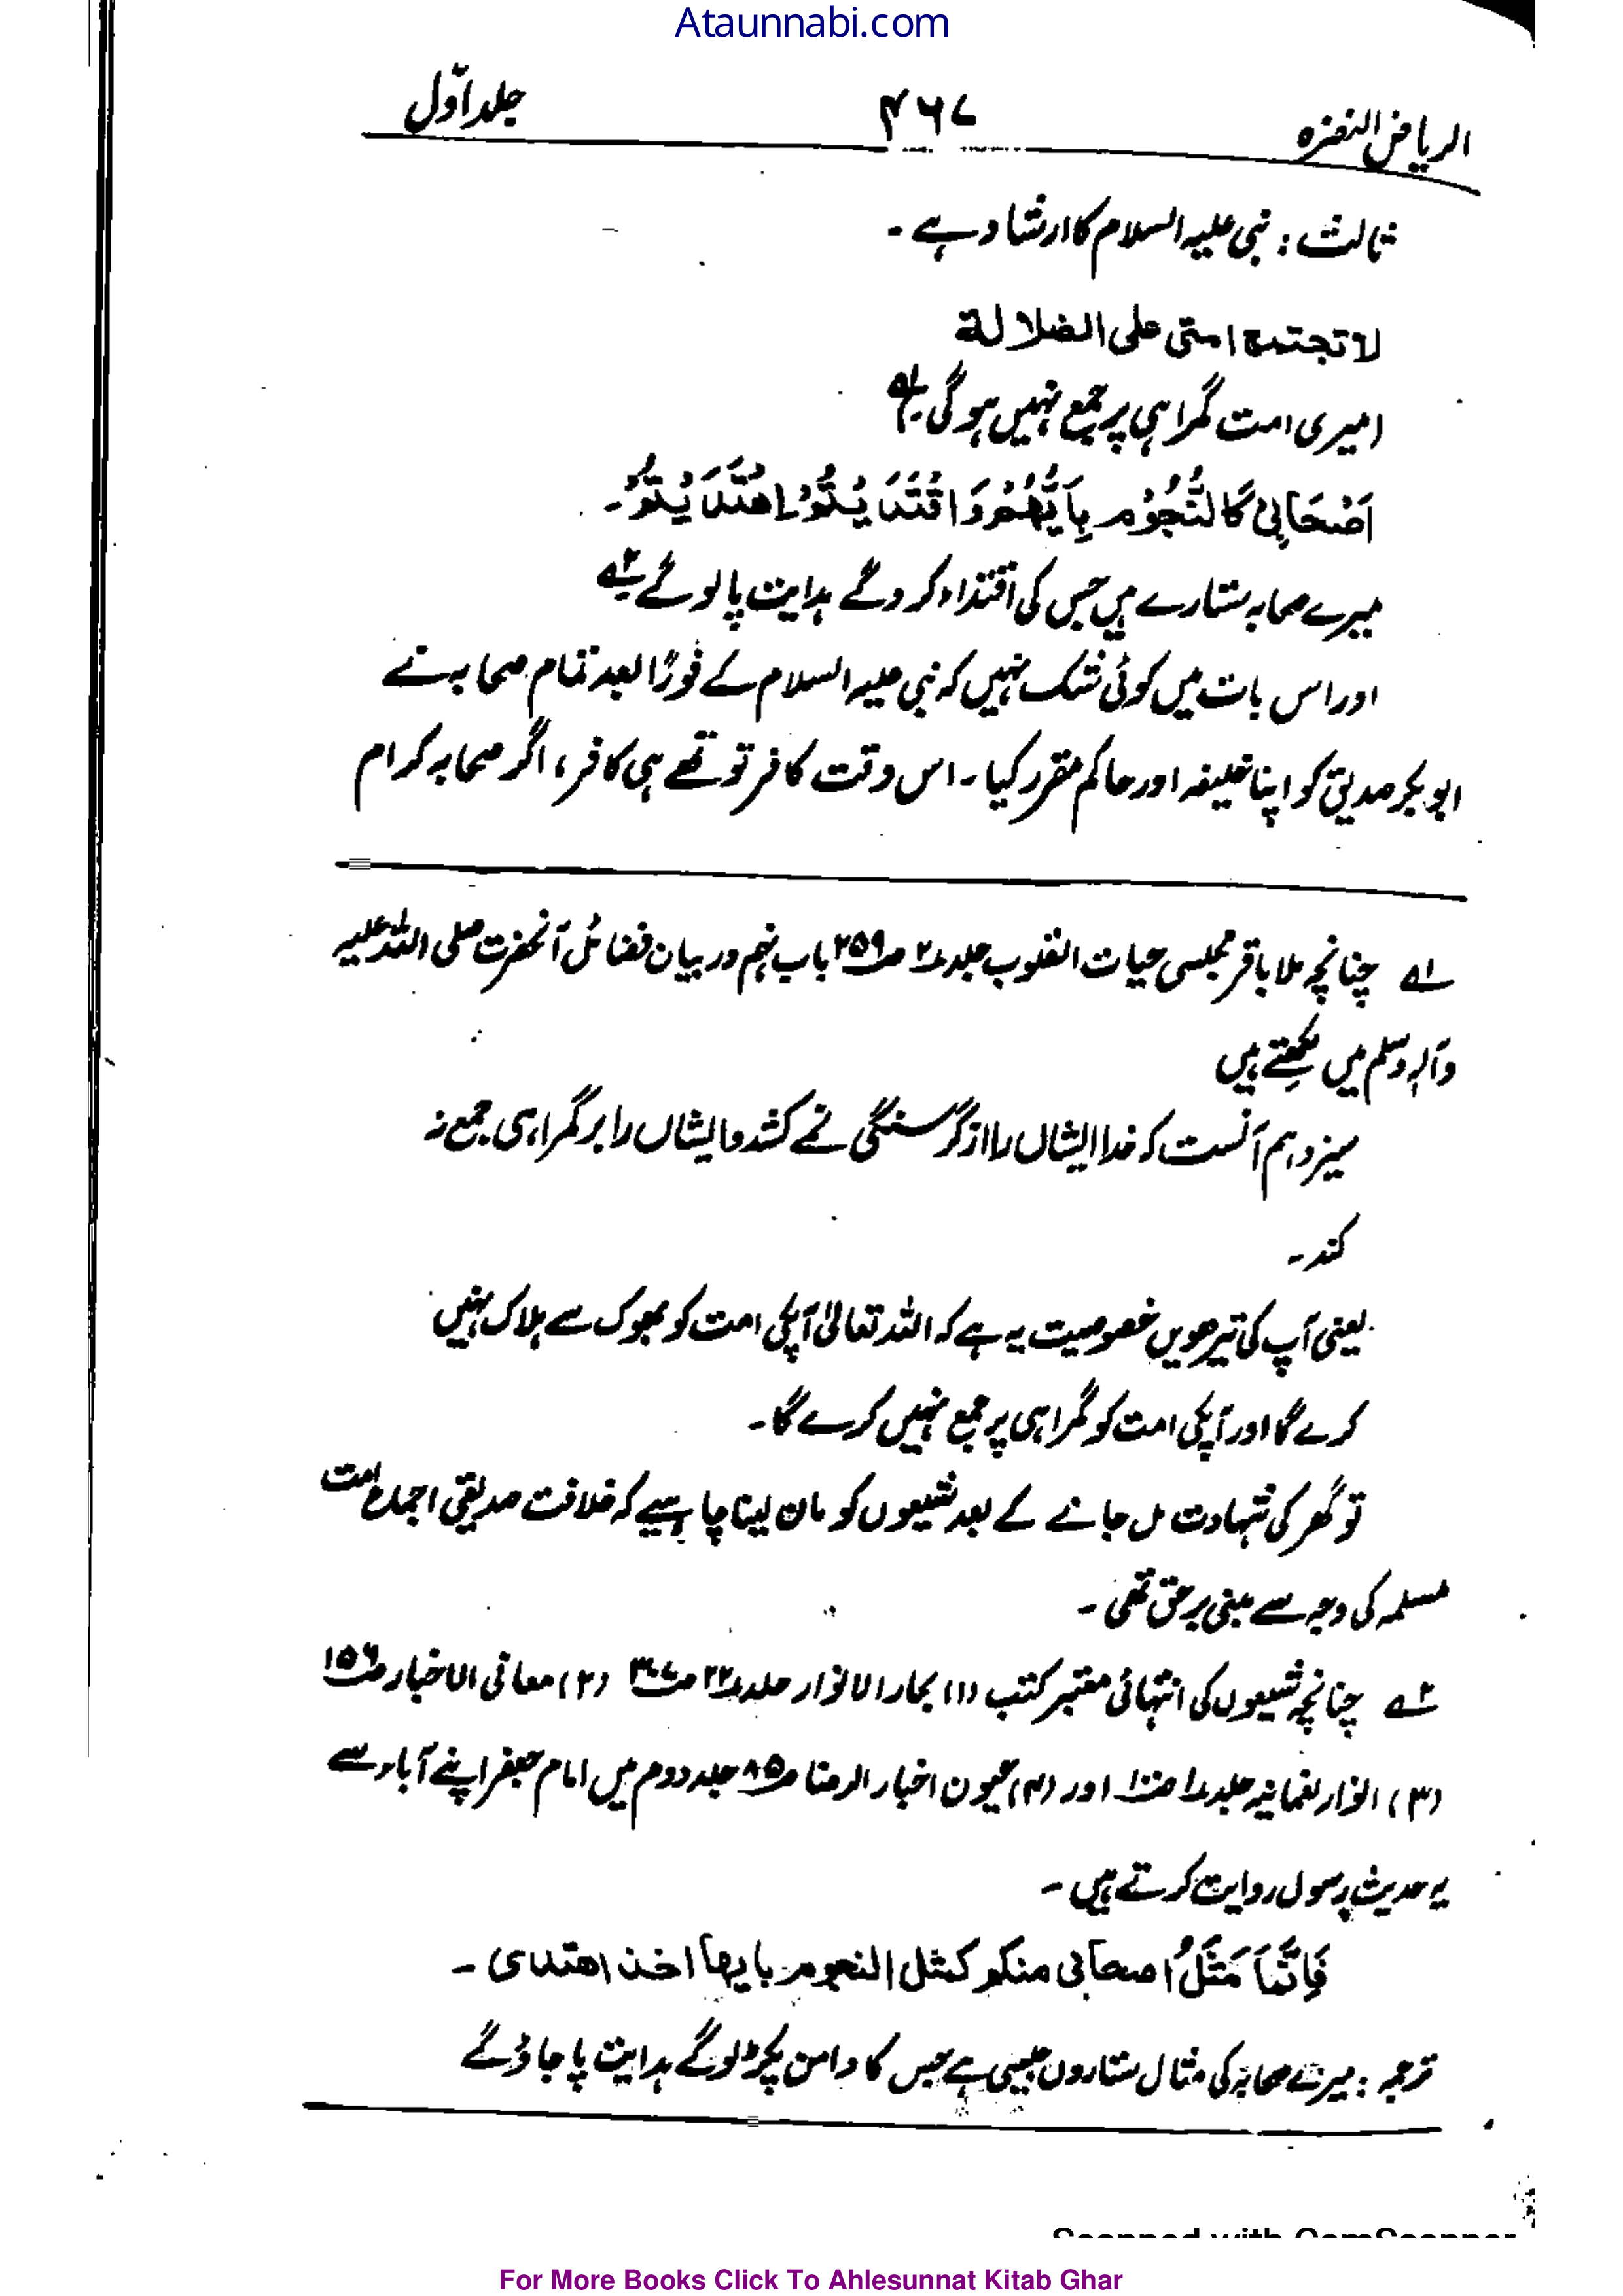 Ataunnabi.com
الریاض النضرہ ۴۶۷ جلد اوّل
ثالث : نبی علیہ السلام کا ارشاد ہے ۔
لا تجتمع امتی علی الضلالة
(میری امت گمراہی پر جمع نہیں ہوگی)۔ ۱ے
اَصْحَابِیْ کَالنُّجُوْمِ بِاَیِّهُمْ وَاقْتَدَیْتُوْ اِهْتَدَیْتُوْ۔
میرے صحابہ ستارے ہیں جس کی اقتداء کرو گے ہدایت پا لو گے ۔ ۲ے
اور اس بات میں کوئی شک نہیں کہ نبی علیہ السلام کے فورًا بعد تمام صحابہ نے
ابوبکر صدیق کو اپنا خلیفہ اور حاکم مقرر کیا ۔ اس وقت کافر تو تھے ہی کافر، اگر صحابہ کرام
۱ے چنانچہ ملا باقر مجلسی حیات القلوب جلد ۲ ص۲۵۹ باب پنجم در بیان فضائل آنحضرت صلی اللہ علیہ
وآلہ وسلم میں لکھتے ہیں
سیزدہم آنست کہ خدا ایشاں را از گرسنگی نے کشد و ایشاں را بر گمراہی جمع نہ
کند ۔
یعنی آپ کی تیرھویں خصوصیت یہ ہے کہ اللہ تعالیٰ آپکی امت کو بھوک سے ہلاک نہیں
کرے گا اور آپکی امت کو گمراہی پر جمع نہیں کرے گا ۔
تو گھر کی شہادت مل جانے کے بعد شیعوں کو مان لینا چاہیے کہ خلافت صدیقی اجماع امت
مسلمہ کی وجہ سے مبنی برحق تھی ۔
۲ے چنانچہ شیعوں کی انتہائی معتبر کتب (۱) بحار الانوار جلد ۲۲ ص۳۰۷ (۲) معانی الاخبار ص۱۵۶
(۳) انوار نعمانیہ جلد ۱ ص۱۰۰ اور (۴) عیون اخبار الرضا ص۸۵ جلد دوم میں امام جعفر اپنے آباء سے
یہ حدیث رسول روایت کرتے ہیں ۔
فَاِنَّمَا مَثَلُ اصحابی منکم کمثل النجوم بایها اخذ اهتدی ۔
ترجمہ : میرے صحابہ کی مثال ستاروں جیسی ہے جس کا دامن پکڑ لو گے ہدایت پا جاؤ گے
Scanned with CamScanner
For More Books Click To Ahlesunnat Kitab Ghar